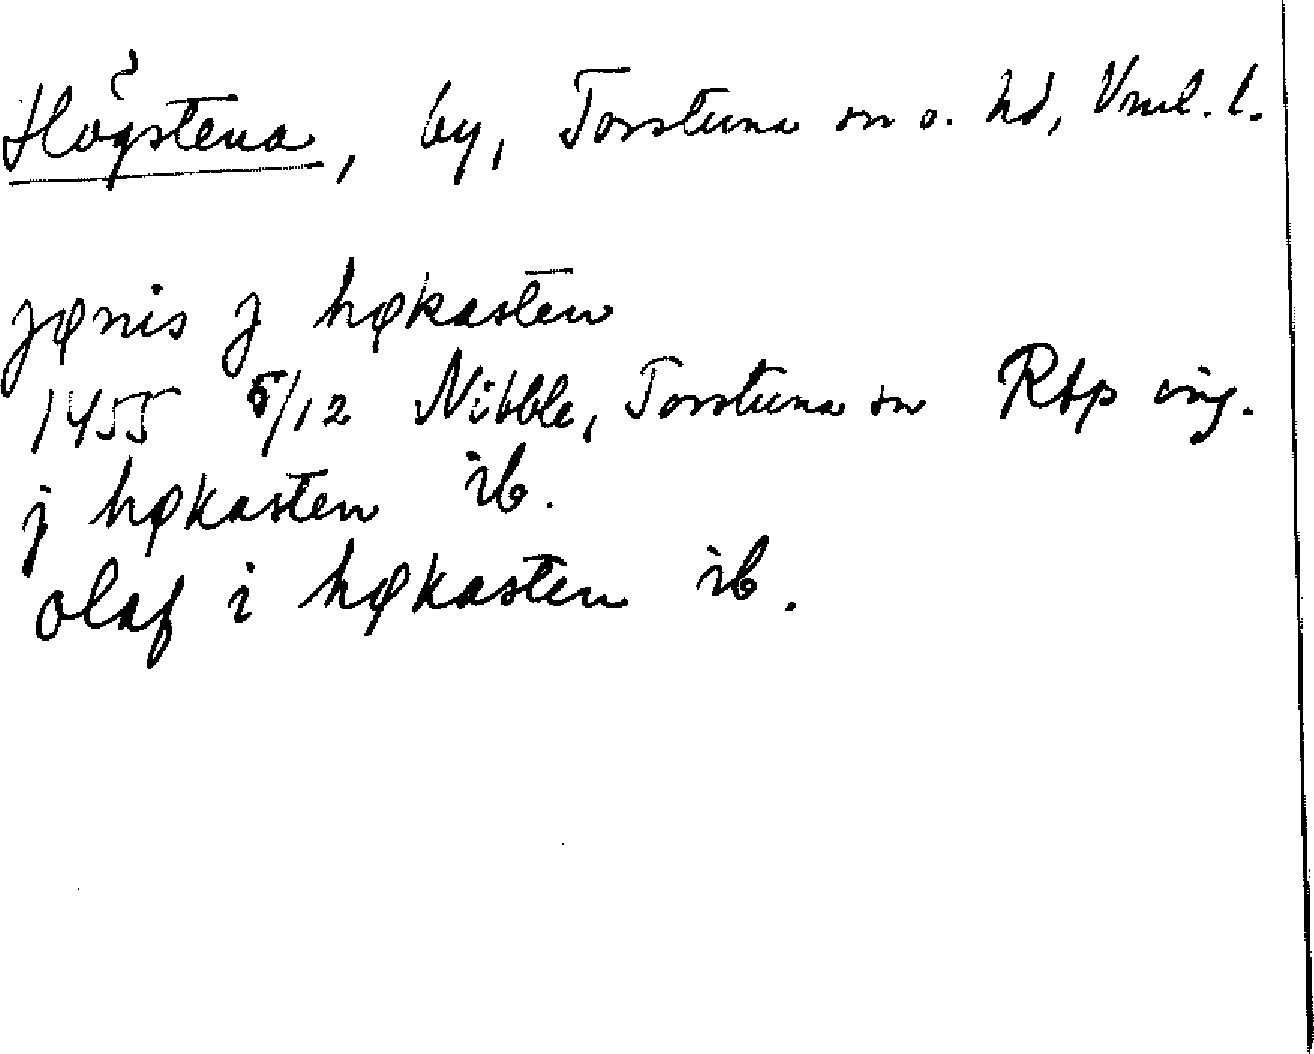 Högstena, by, Torstuna sn o. hd, Vml. l.
jønis j høkasten
1455 5/12 Nibble, Torstuna sn Rbp orig.
j høkasten ib.
olaf i høkasten ib.